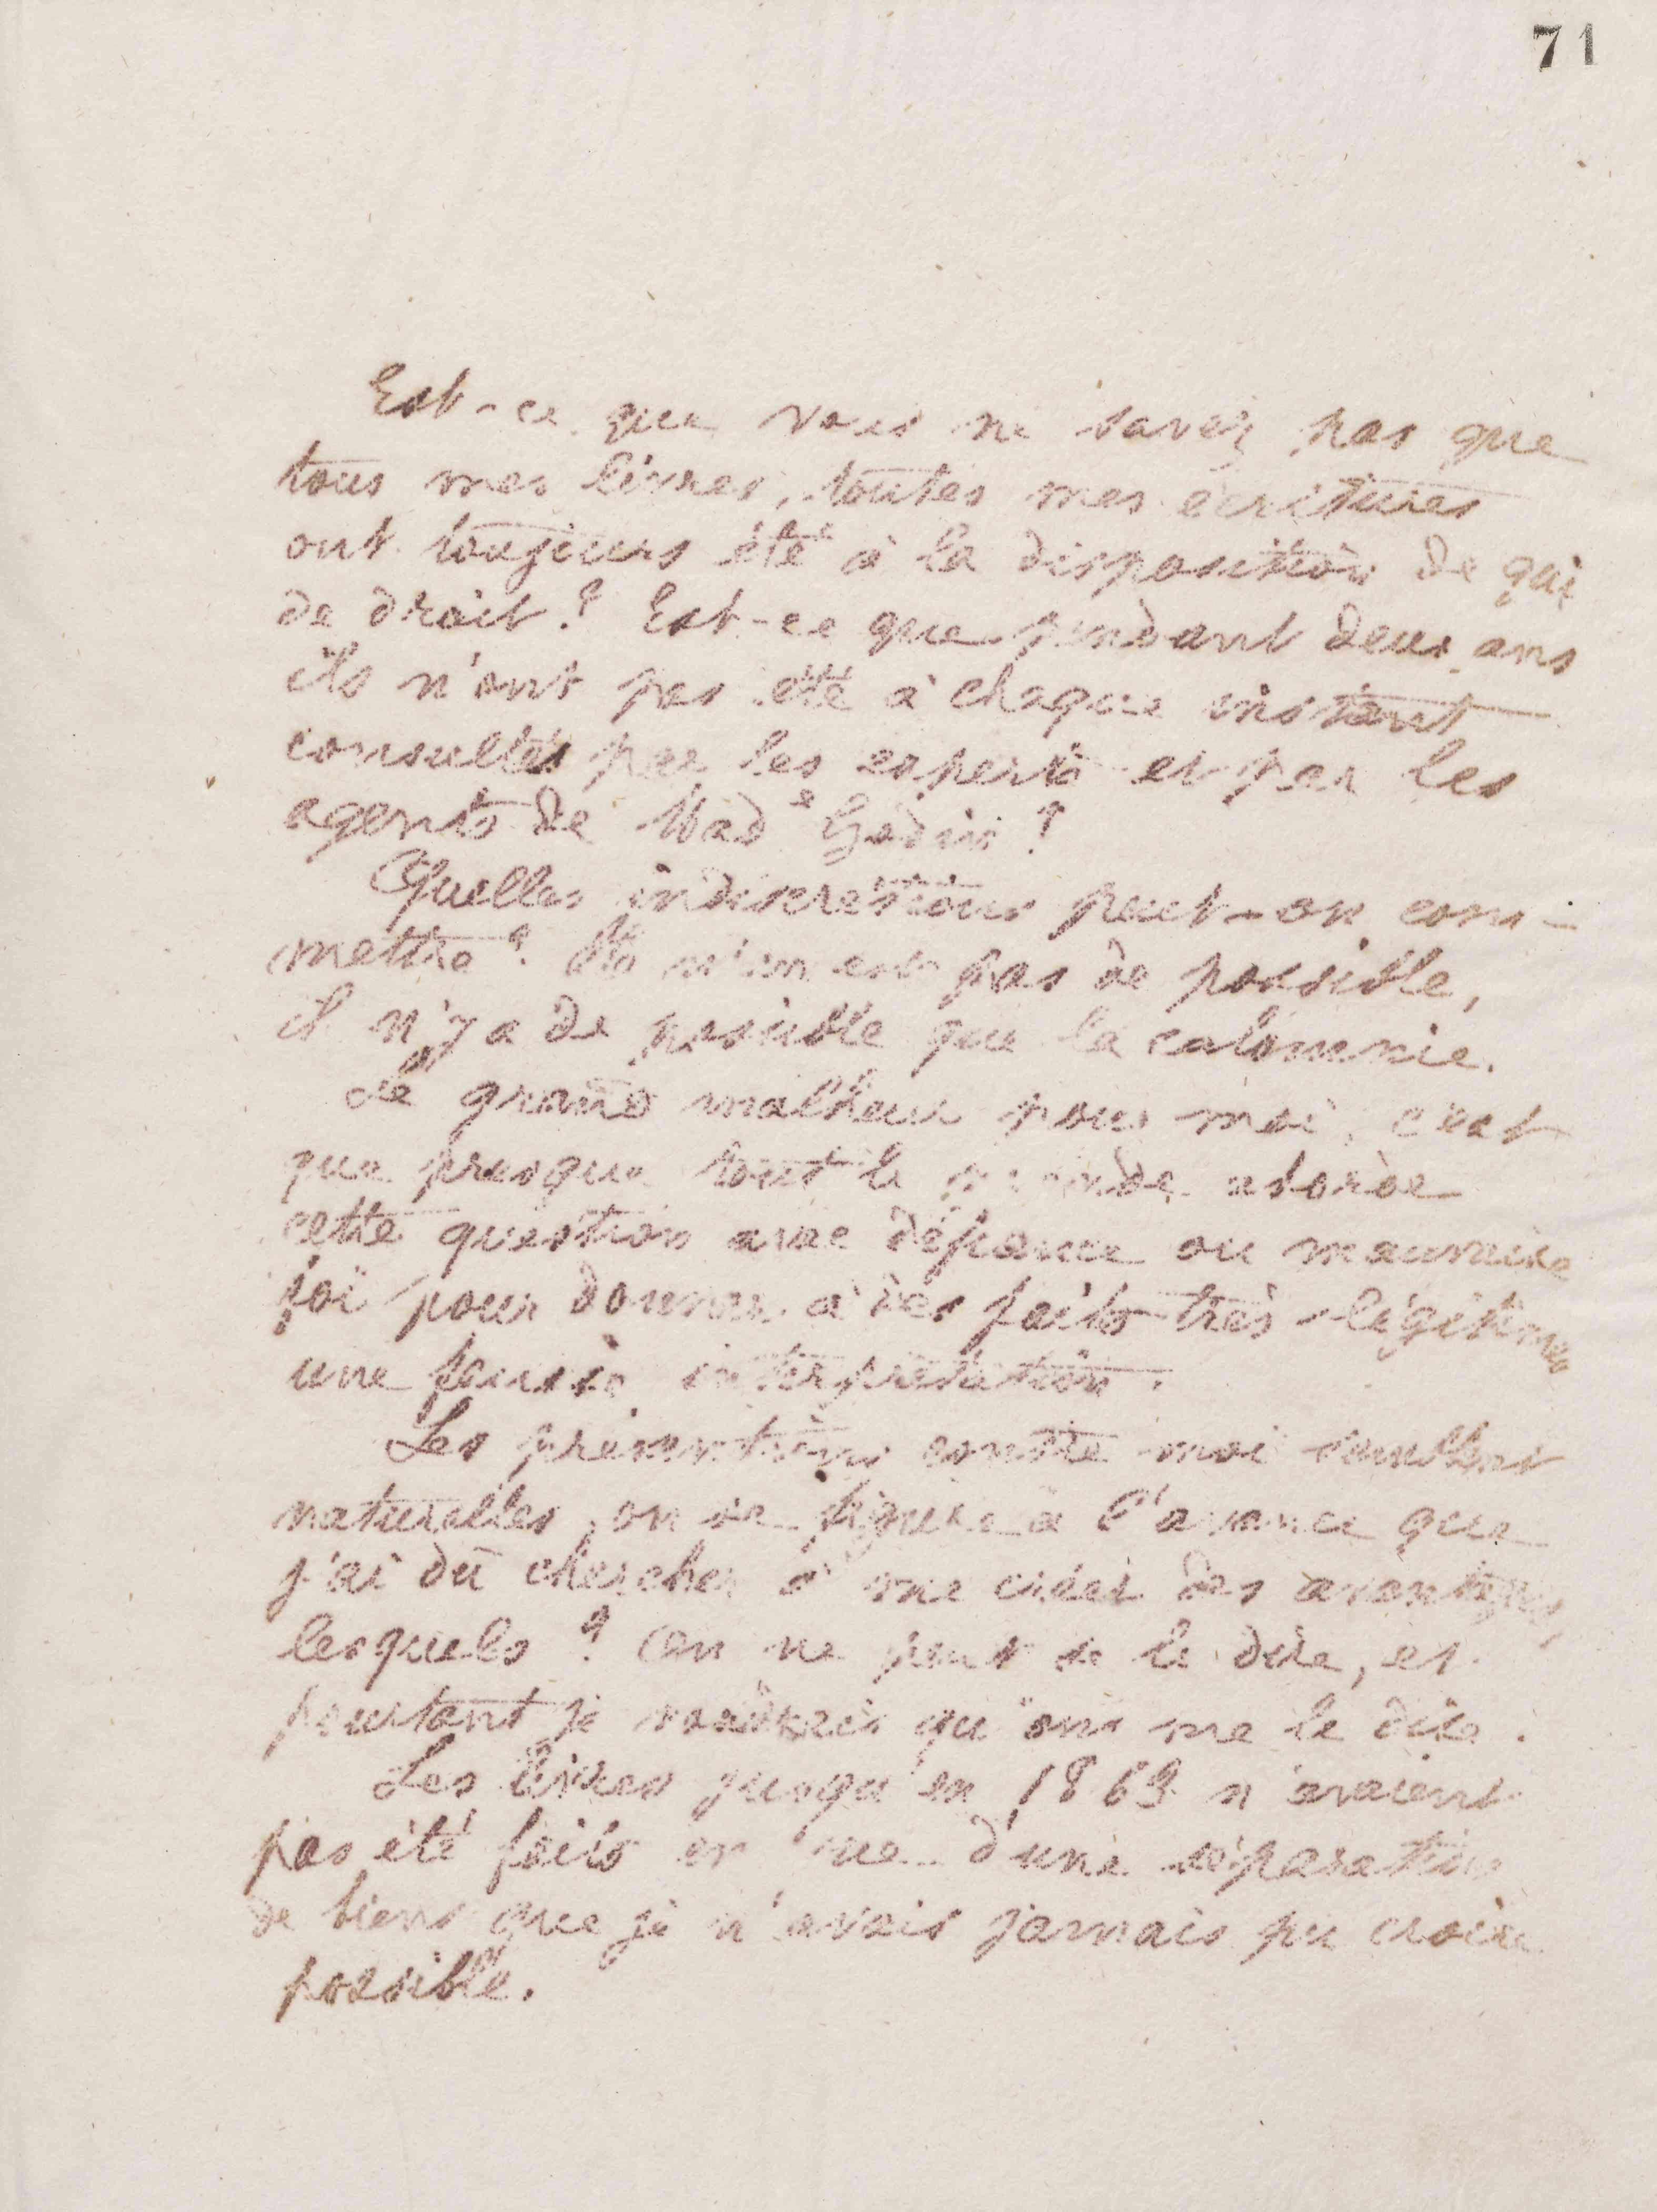 71
Est-ce que vous ne savez pas que
tous mes livres, toutes mes écritures
ont toujours été à la disposition de qui
de droit ? Est-ce que pendant deux ans
ils n'ont pas été à chaque instant
consultés par les experts et par les
agents de Mad^e Godin ?
Quelles indiscrétions peut-on com-
mettre ? n'en est pas de possible,
il n'y a de possible que la calomnie.
Le grand malheur pour moi, c'est
que presque tout le monde aborde
cette question avec défiance ou mauvaise
foi pour donner à des faits très-légitimes
une fausse interprétation.
Les préventions contre moi semblent
naturelles, on se figure à l'avance que
j'ai dû chercher à me créer des avantages,
lesquels ? On ne peut se le dire, et
pourtant je voudrais qu'on me le dise.
Les livres jusqu'en 1863 n'avaient
pas été faits en vue d'une séparation
de biens que je n'avais jamais pu croire
possible.